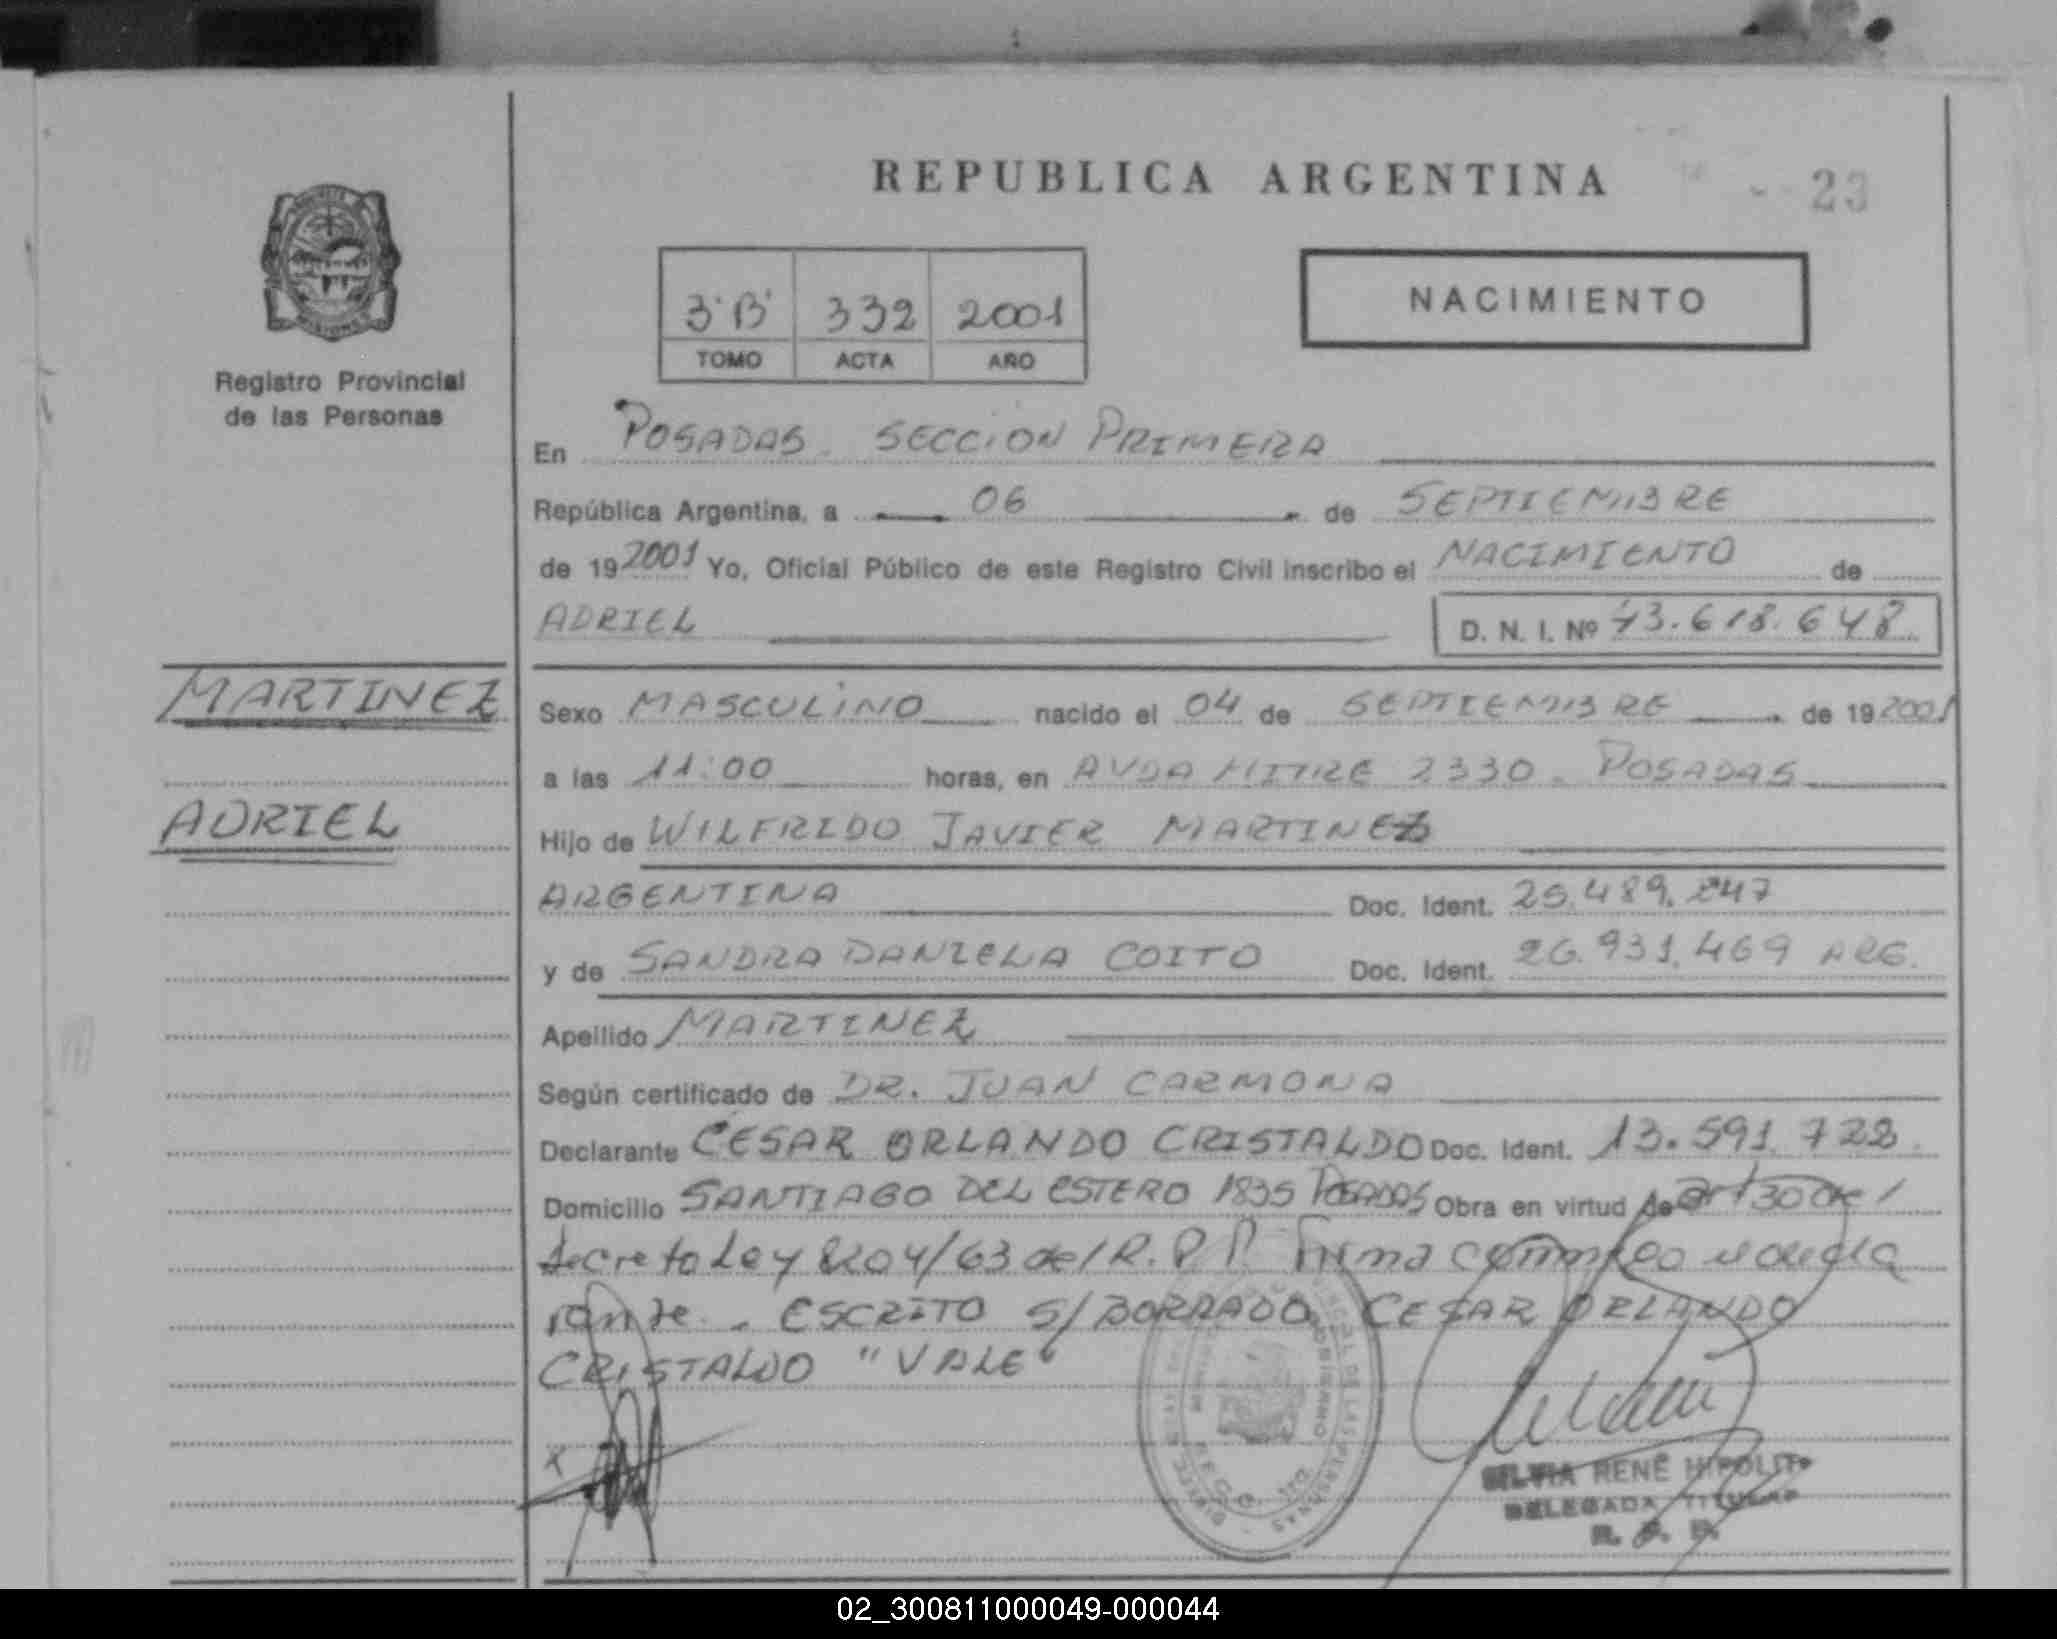 REPUBLICA ARGENTINA
23
3 "B" 332 2001
TOMO ACTA AÑO
NACIMIENTO
MISIONES
Registro Provincial
de las Personas
En POSADAS. SECCION PRIMERA
República Argentina, a 06 de SEPTIEMBRE
de 19 2001 Yo, Oficial Público de este Registro Civil inscribo el NACIMIENTO de
ADRIEL D. N. I. Nº 43.618.648
MARTINEZ
ADRIEL
Sexo MASCULINO nacido el 04 de SEPTIEMBRE de 19 2001
a las 11:00 horas, en AVDA MITRE 2330. POSADAS
Hijo de WILFRIDO JAVIER MARTINEZ
ARGENTINA Doc. Ident. 25.489.247
y de SANDRA DANIELA COITO Doc. Ident. 26.931.469 ARG.
Apellido MARTINEZ
Según certificado de DR. JUAN CARMONA
Declarante CESAR ORLANDO CRISTALDO Doc. Ident. 13.591.722
Domicilio SANTIAGO DEL ESTERO 1835 POSADAS Obra en virtud de art 30 del
decreto Ley 8204/63 del R.P.P. Firma conmigo el decla
rante. ESCRITO S/BORRADO CESAR ORLANDO
CRISTALDO "VALE"
X
SILVIA RENÉ HIPOLITO
DELEGADA TITULAR
R. P. P.
02_300811000049-000044